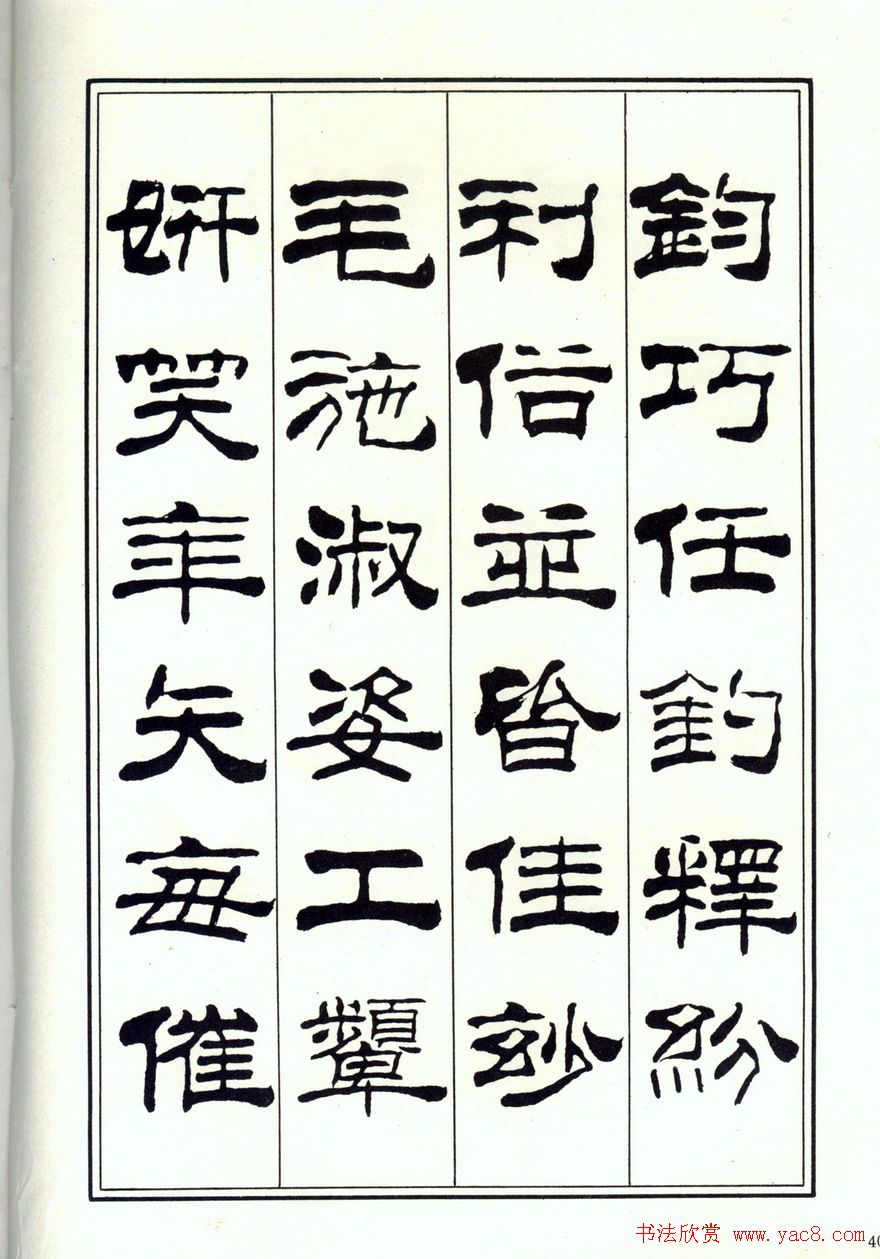 鈞巧任釣釋紛
利俗並皆佳玅
毛施淑姿工顰
妍笑年矢每催
书法欣赏 www.yac8.com
40